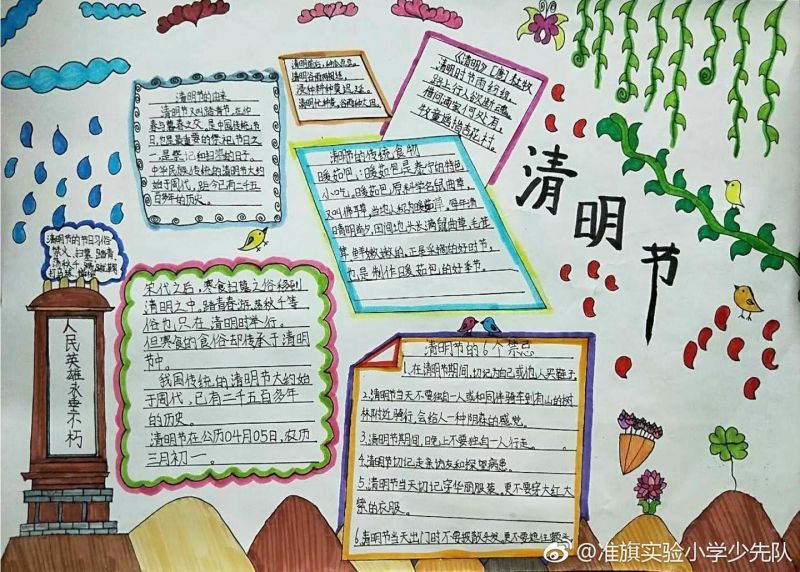 清明节
清明节的由来
清明节又叫踏青节，在仲
春与暮春之交，是中国传统节
日，也是最重要的祭祀节日之
一，是祭祀和扫墓的日子。
中华民族传统的清明节大约
始于周代，距今已有二千五
百多年的历史。
清明前后，种瓜点豆。
清明谷雨两相连，
浸种耕种莫迟延。
清明忙种麦，谷雨种大田。
《清明》[唐]杜牧
清明时节雨纷纷，
路上行人欲断魂。
借问酒家何处有，
牧童遥指杏花村。
清明节的传统食物
暖菇包，暖菇包是泰宁的特色
小吃，暖菇包原料学名鼠曲草，
又叫佛耳草，当地人称为暖菇草。每年清
明前夕，田间地头长满鼠曲草，毛茸
茸，鲜嫩嫩的。正是采摘的好时节，
也是制作暖菇包的好季节。
清明节的节日习俗
禁火、扫墓、踏青
人民英雄永垂不朽
宋代之后，寒食扫墓之俗移到
清明之中，踏青春游、荡秋千等
俗也只在清明时举行。
但寒食的食俗却传承于清明
节中。
我国传统的清明节大约始
于周代，已有二千五百多年
的历史。
清明节在公历04月05日，农历
三月初一。
清明节的6个禁忌
1.在清明节期间，切记为自己或他人买鞋子
2.清明节当天不要独自一人或和同伴骑车到有山的树
林附近骑行，会给人一种阴森的感觉。
3.清明节期间，日晚上不要独自一人行走。
4.清明节切记走亲访友和探望病患。
5.清明节当天切记穿华丽服装，更不要穿大红大
紫的衣服。
6.清明节当天出门时不要披散头发，更不要遮住额头
@准旗实验小学少先队